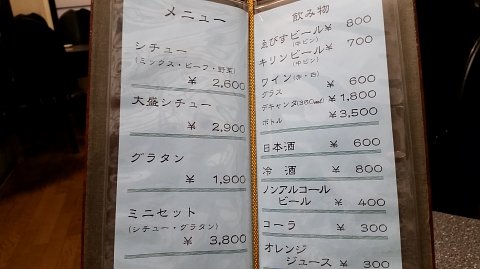 メニュー
シチュー
(ミックス・ビーフ・野菜)
¥ 2,600
大盛シチュー
¥ 2,900
グラタン
¥ 1,900
ミニセット
(シチュー・グラタン)
¥ 3,800
飲み物
ゑびすビール¥ 800
(中ビン)
キリンビール¥ 700
(中ビン)
ワイン(赤・白)
グラス ¥ 600
デキャンタ(360ml) ¥1,800
ボトル ¥3,500
日本酒 ¥ 600
冷酒 ¥ 800
ノンアルコール
ビール ¥ 400
コーラ ¥ 300
オレンジ
ジュース ¥ 300